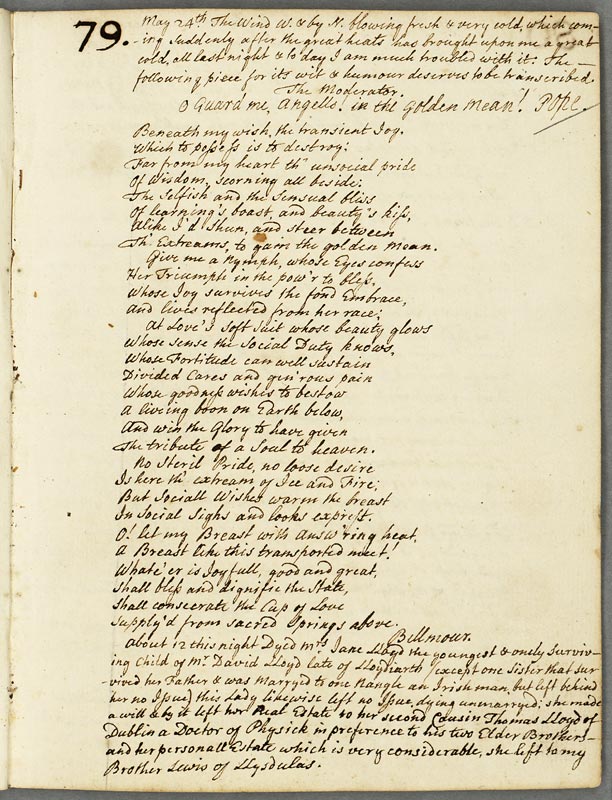 79.
May 24th The Wind W. & by N. blowing fresh & very cold, which com-
-ing Suddenly after the great heats has brought upon me a great
cold, all last night & to day I am much troubled with it. The —
following piece for its wit & humour deserves to be transcribed.
The Moderator.
O Guard me, Angells! in the Golden Mean! Pope.
Beneath my wish, the transient Joy.
Which to possess is to destroy:
Far from my heart th' unsocial pride
Of Wisdom, scorning all beside:
The Selfish and the Sensual bliss
Of learning's boast, and beauty's kiss,
Alike I'd Shun, and steer between
Th' Extreams, to gain the golden Mean.
Give me a Nymph, whose Eyes confess
Her Triumph in the pow'r to bless.
Whose Joy survives the fond Embrace,
And lives reflected from her race;
At Love's Soft Suit whose beauty glows
Whose sense the Social Duty knows,
Whose Fortitude can well sustain
Divided Cares and gen'rous pain
Whose goodness wishes to bestow
A living boon on Earth below,
And win the Glory to have given
The tribute of a Soul to heaven.
No Steril Pride, no loose desire
Is here th' extream of Ice and Fire;
But Sociall Wishes warm the breast
In Social Sighs and looks exprest.
O! let my Breast with answ'ring heat,
A Breast like this transported meet!
Whate'er is Joyfull, good and great,
Shall bless and dignifie the State,
Shall consecrate the Cup of Love
Supply'd from sacred Springs above.
Bellmour.
About 12 this night Dyed Mrs Jane Lloyd the youngest & onely Surviv-
ing Child of Mr. David Lloyd late of Llwydiarth (except one Sister that sur-
-vived her Father & was Marryed to one Nangle an Irishman, but left behind
her no Issue) this Lady likewise left no Issue, dying unmarryed; she made
a will & by it left her Real Estate to her second Cousin Thomas Lloyd of
Dublin a Doctor of Physick in preference to his two Elder Brothers —
and her personall Estate which is very considerable, she left to my
Brother Lewis of Llysdulas.